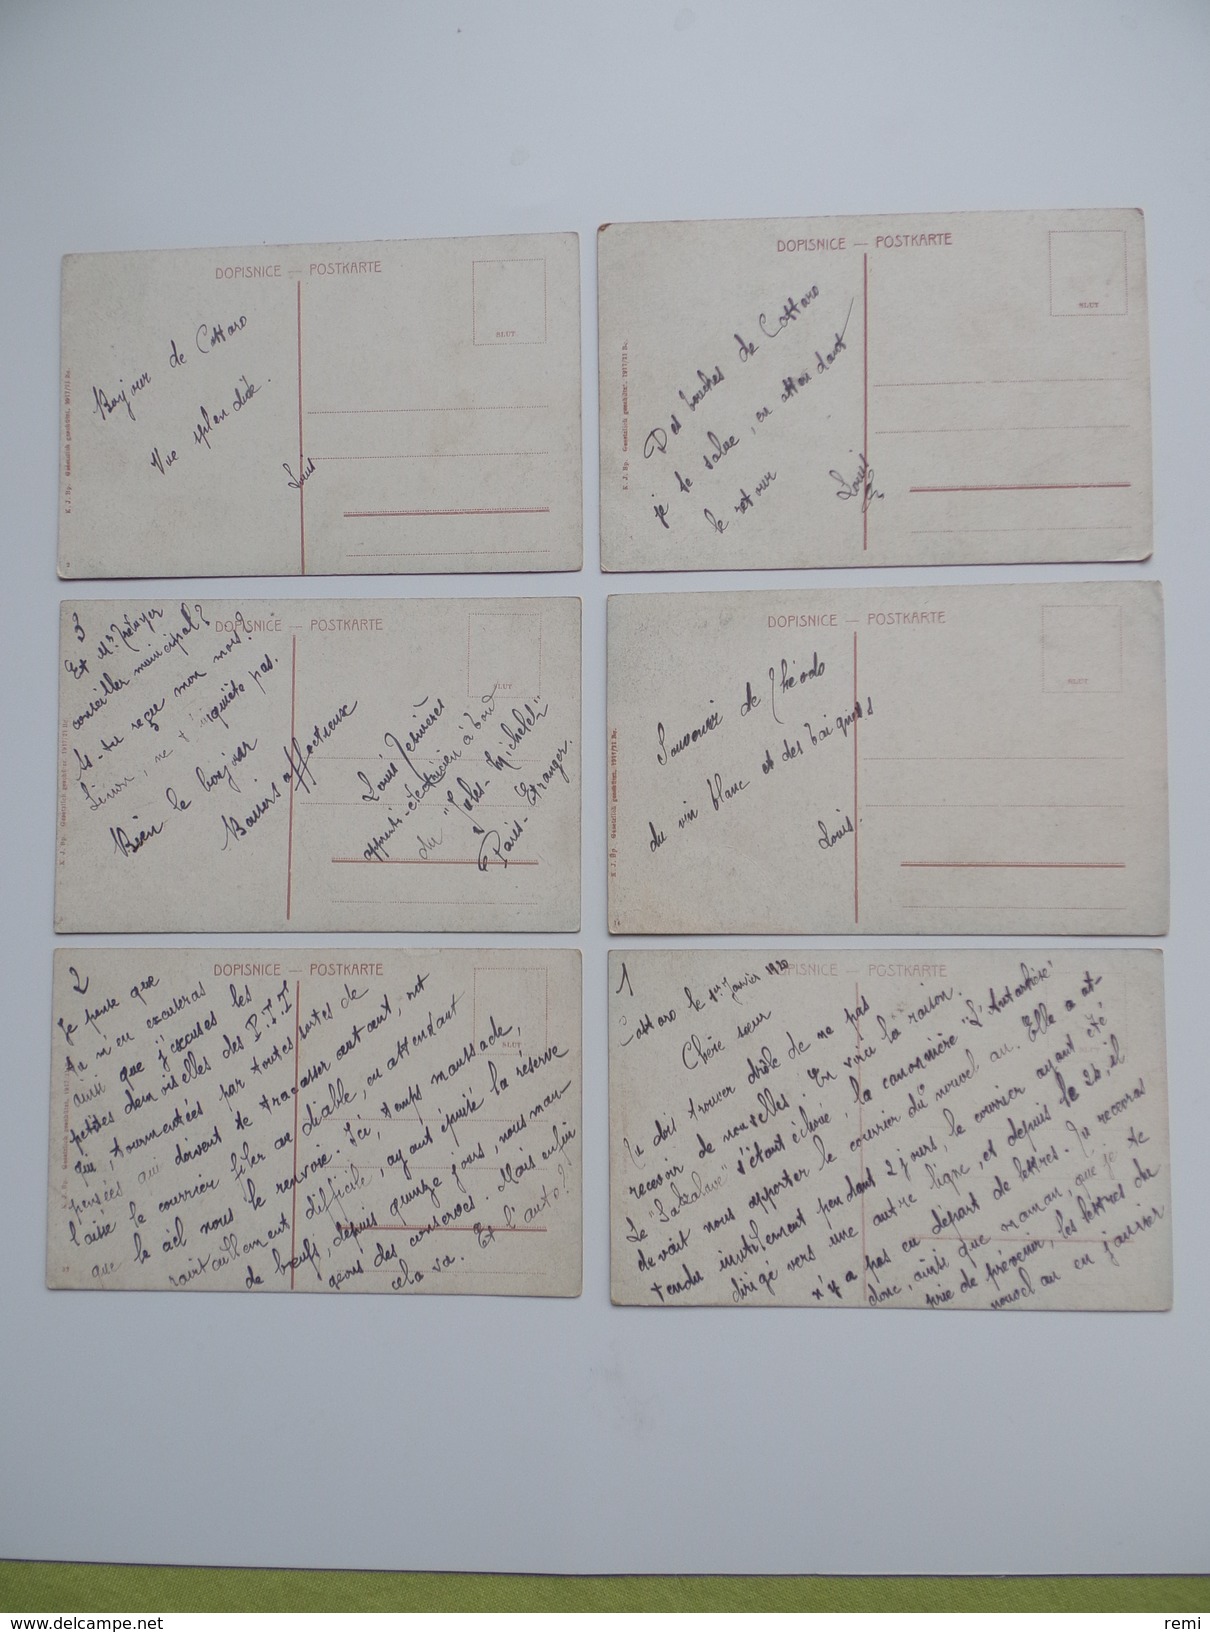 DOPISNICE — POSTKARTE
SLUT
K. J. Bp. Gesetzlich geschützt. 1917/21 Re.
Bonjour de Cattaro
Vue splendide.
Louis
DOPISNICE — POSTKARTE
SLUT
K. J. Bp. Gesetzlich geschützt. 1917/21 Re.
Des bouches de Cattaro
je te salue, en attendant
le retour
Louis
3
DOPISNICE — POSTKARTE
SLUT
K. J. Bp. Gesetzlich geschützt. 1917/21 Re.
Et Mr
conseiller municipal?
As-tu reçu mon mois?
Sinon, ne t'inquiète pas.
Bien le bonjour
Baisers affectueux
Louis
apprenti-électricien à bord
du "Jules-Michelet"
Paris-Etranger.
DOPISNICE — POSTKARTE
K. J. Bp. Gesetzlich geschützt. 1917/21 Re.
Souvenir de Théodo
du vin blanc et des baignades
Louis.
2
DOPISNICE — POSTKARTE
SLUT
Je pense que
tu m'en excuseras
ainsi que j'excuses les
petites demoiselles des P.T.T
qui, tourmentées par toutes sortes de
pensées qui doivent te tracasser autant, ont
laissé le courrier filer au diable, en attendant
que le ciel nous le renvoie. Ici, temps maussade,
ravitaillement difficile, ayant épuisé la réserve
de bœufs, depuis quinze jours, nous man-
geons des conserves. Mais enfin
cela va. Et l'auto?
1
DOPISNICE — POSTKARTE
Cattaro le 1er Janvier 1920
Chère sœur
Tu dois trouver drôle de ne pas
recevoir de nouvelles; En voici la raison.
Le "Sakalave" s'étant échoué, la canonnière "L'Antarès"
devait nous apporter le courrier du nouvel an. Elle a at-
tendu inutilement pendant 2 jours, le courrier ayant été
dirigé vers une autre ligne, et depuis le 26, il
n'y a pas eu départ de lettres. Tu recevras
donc, ainsi que maman, que je te
prie de prévenir, les lettres du
nouvel an en janvier
remi